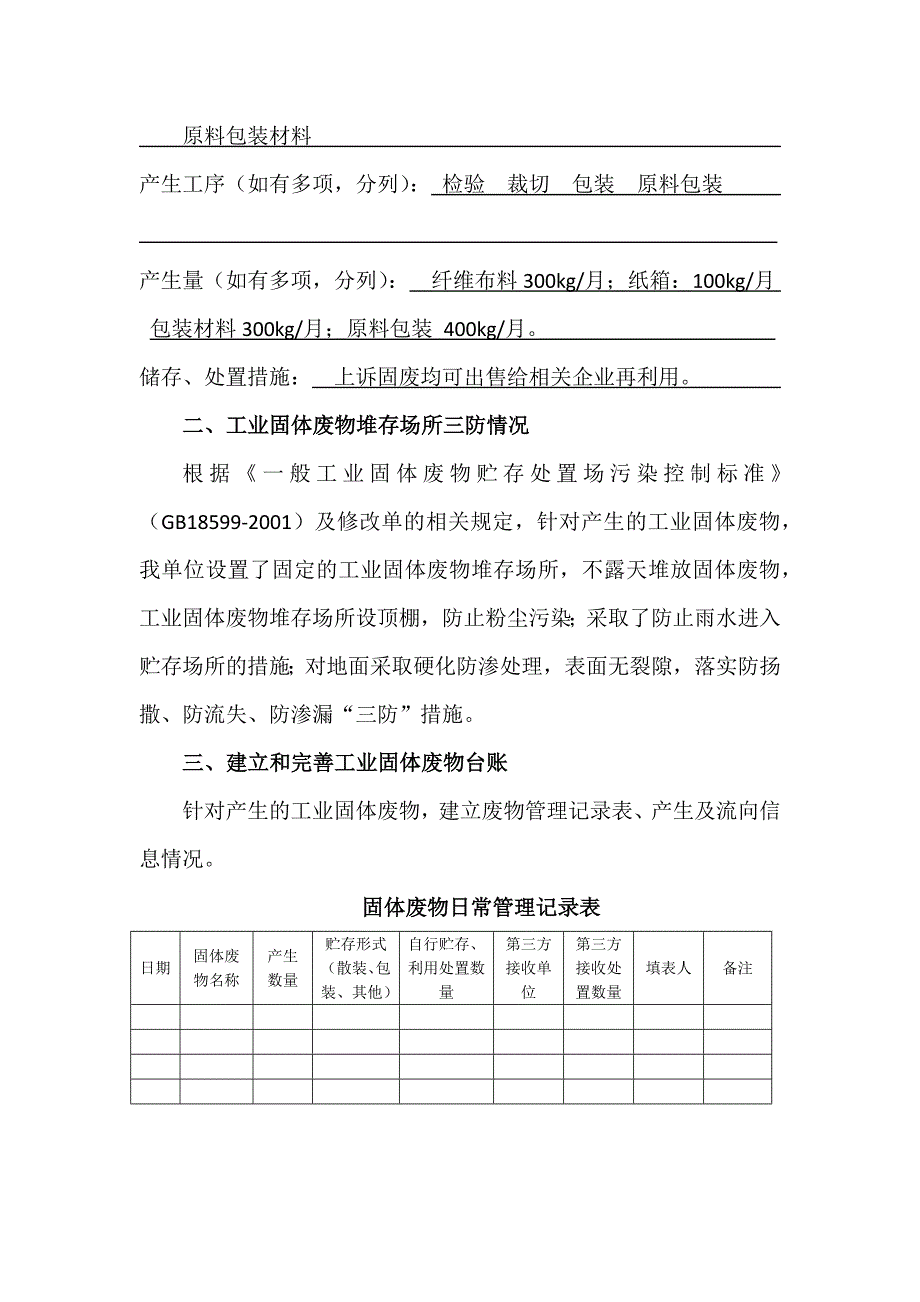 原料包装材料
产生工序（如有多项，分列）： 检验 裁切 包装 原料包装
产生量（如有多项，分列）： 纤维布料 300kg/月；纸箱：100kg/月
包装材料 300kg/月；原料包装 400kg/月。
储存、处置措施： 上诉固废均可出售给相关企业再利用。
二、工业固体废物堆存场所三防情况
根据《一般工业固体废物贮存处置场污染控制标准》
（GB18599-2001）及修改单的相关规定，针对产生的工业固体废物，
我单位设置了固定的工业固体废物堆存场所，不露天堆放固体废物，
工业固体废物堆存场所设顶棚，防止粉尘污染；采取了防止雨水进入
贮存场所的措施；对地面采取硬化防渗处理，表面无裂隙，落实防扬
撒、防流失、防渗漏“三防”措施。
三、建立和完善工业固体废物台账
针对产生的工业固体废物，建立废物管理记录表、产生及流向信
息情况。
固体废物日常管理记录表
日期
固体废
物名称
产生
数量
贮存形式
（散装、包
装、其他）
自行贮存、
利用处置数
量
第三方
接收单
位
第三方
接收处
置数量
填表人
备注